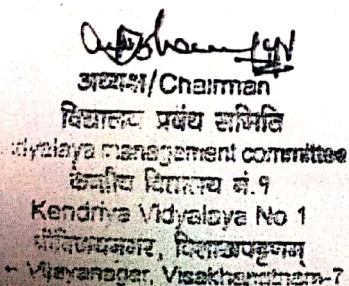 अध्यक्ष/Chairman
विद्यालय प्रबंध समिति
idyalaya management committee
केन्द्रीय विद्यालय नं.१
Kendriya Vidyalaya No 1
विशाखपट्टणम्
Vijayanagar, Visakhapatnam-7